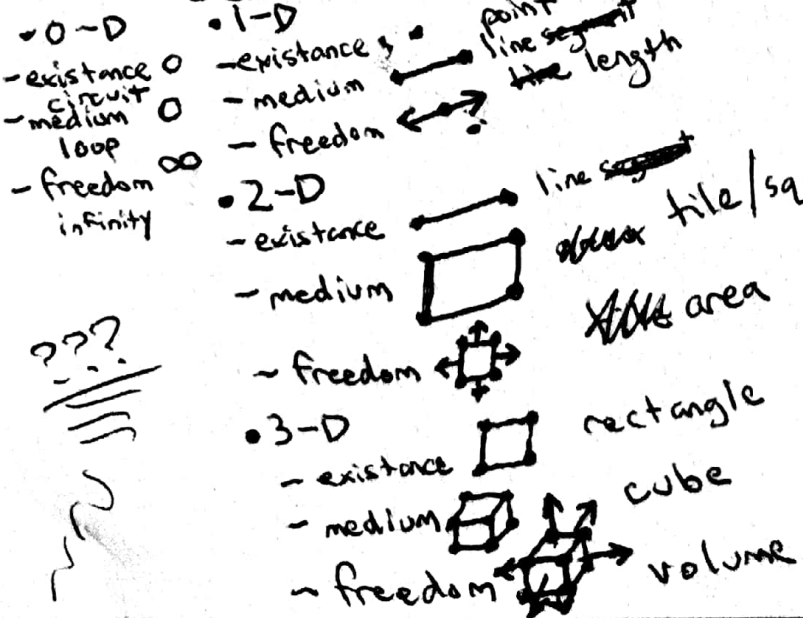 • 0-D
- existance O
circuit
- medium O
loop
- freedom ∞
infinity
???
• 1-D
- existance point
- medium line segment
- freedom length
?
• 2-D
- existance line
- medium tile/sq
- freedom area
• 3-D
- existance rectangle
- medium cube
- freedom volume